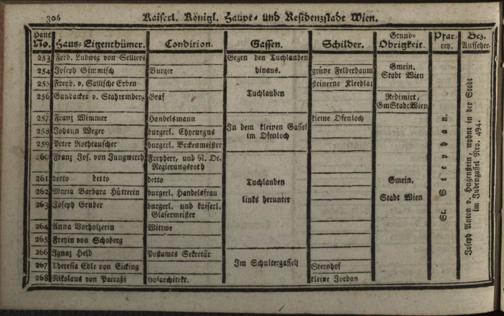 306 Kaiserl. Königl. Haupt- und Residenzstadt Wien.
Haus No. Haus-Eigenthümer. Condition. Gassen. Schilder. Grund-Obrigkeit. Pfarrey. Bez. Aufseher.
253 Ferd. Ludwig von Selliers Gegen den Tuchlauben hinaus. Gmein. Stadt Wien
254 Joseph Gimmisch Burger grüne Felberbaum
255 Freyh. v. Sallische Erben Tuchlauben steinerne Kleeblat
256 Gundacker v. Stahremberg Graf Redimirt, Gm Stadt Wien
257 Franz Wimmer Handelsmann In dem kleinen Gassel im Ofenloch kleine Ofenloch
258 Johann Weger burgerl. Chyrurgus
259 Peter Rothtauscher burgerl. Beckenmeister
260 Franz Jos. von Jungwirth Freyherr, und N. Oe. Regierungsrath Tuchlauben links herunter Gmein. Stadt Wien
261 detto detto detto
262 Maria Barbara Hütterin burgerl. Handelsfrau
263 Joseph Gruber burgerl. und kaiserl. Glasermeister
264 Anna Wittwe
265 Freyin von Schoberg
266 Ignaz Held Postamts Sekretär Im Schultergassel
267 Theresia Edle von Sternhof
268 Nikolaus von Hofarchitekt. kleine Jordan
St. Stephan.
Joseph Anton v. wohnt in der Stadt
im Nro. 494.